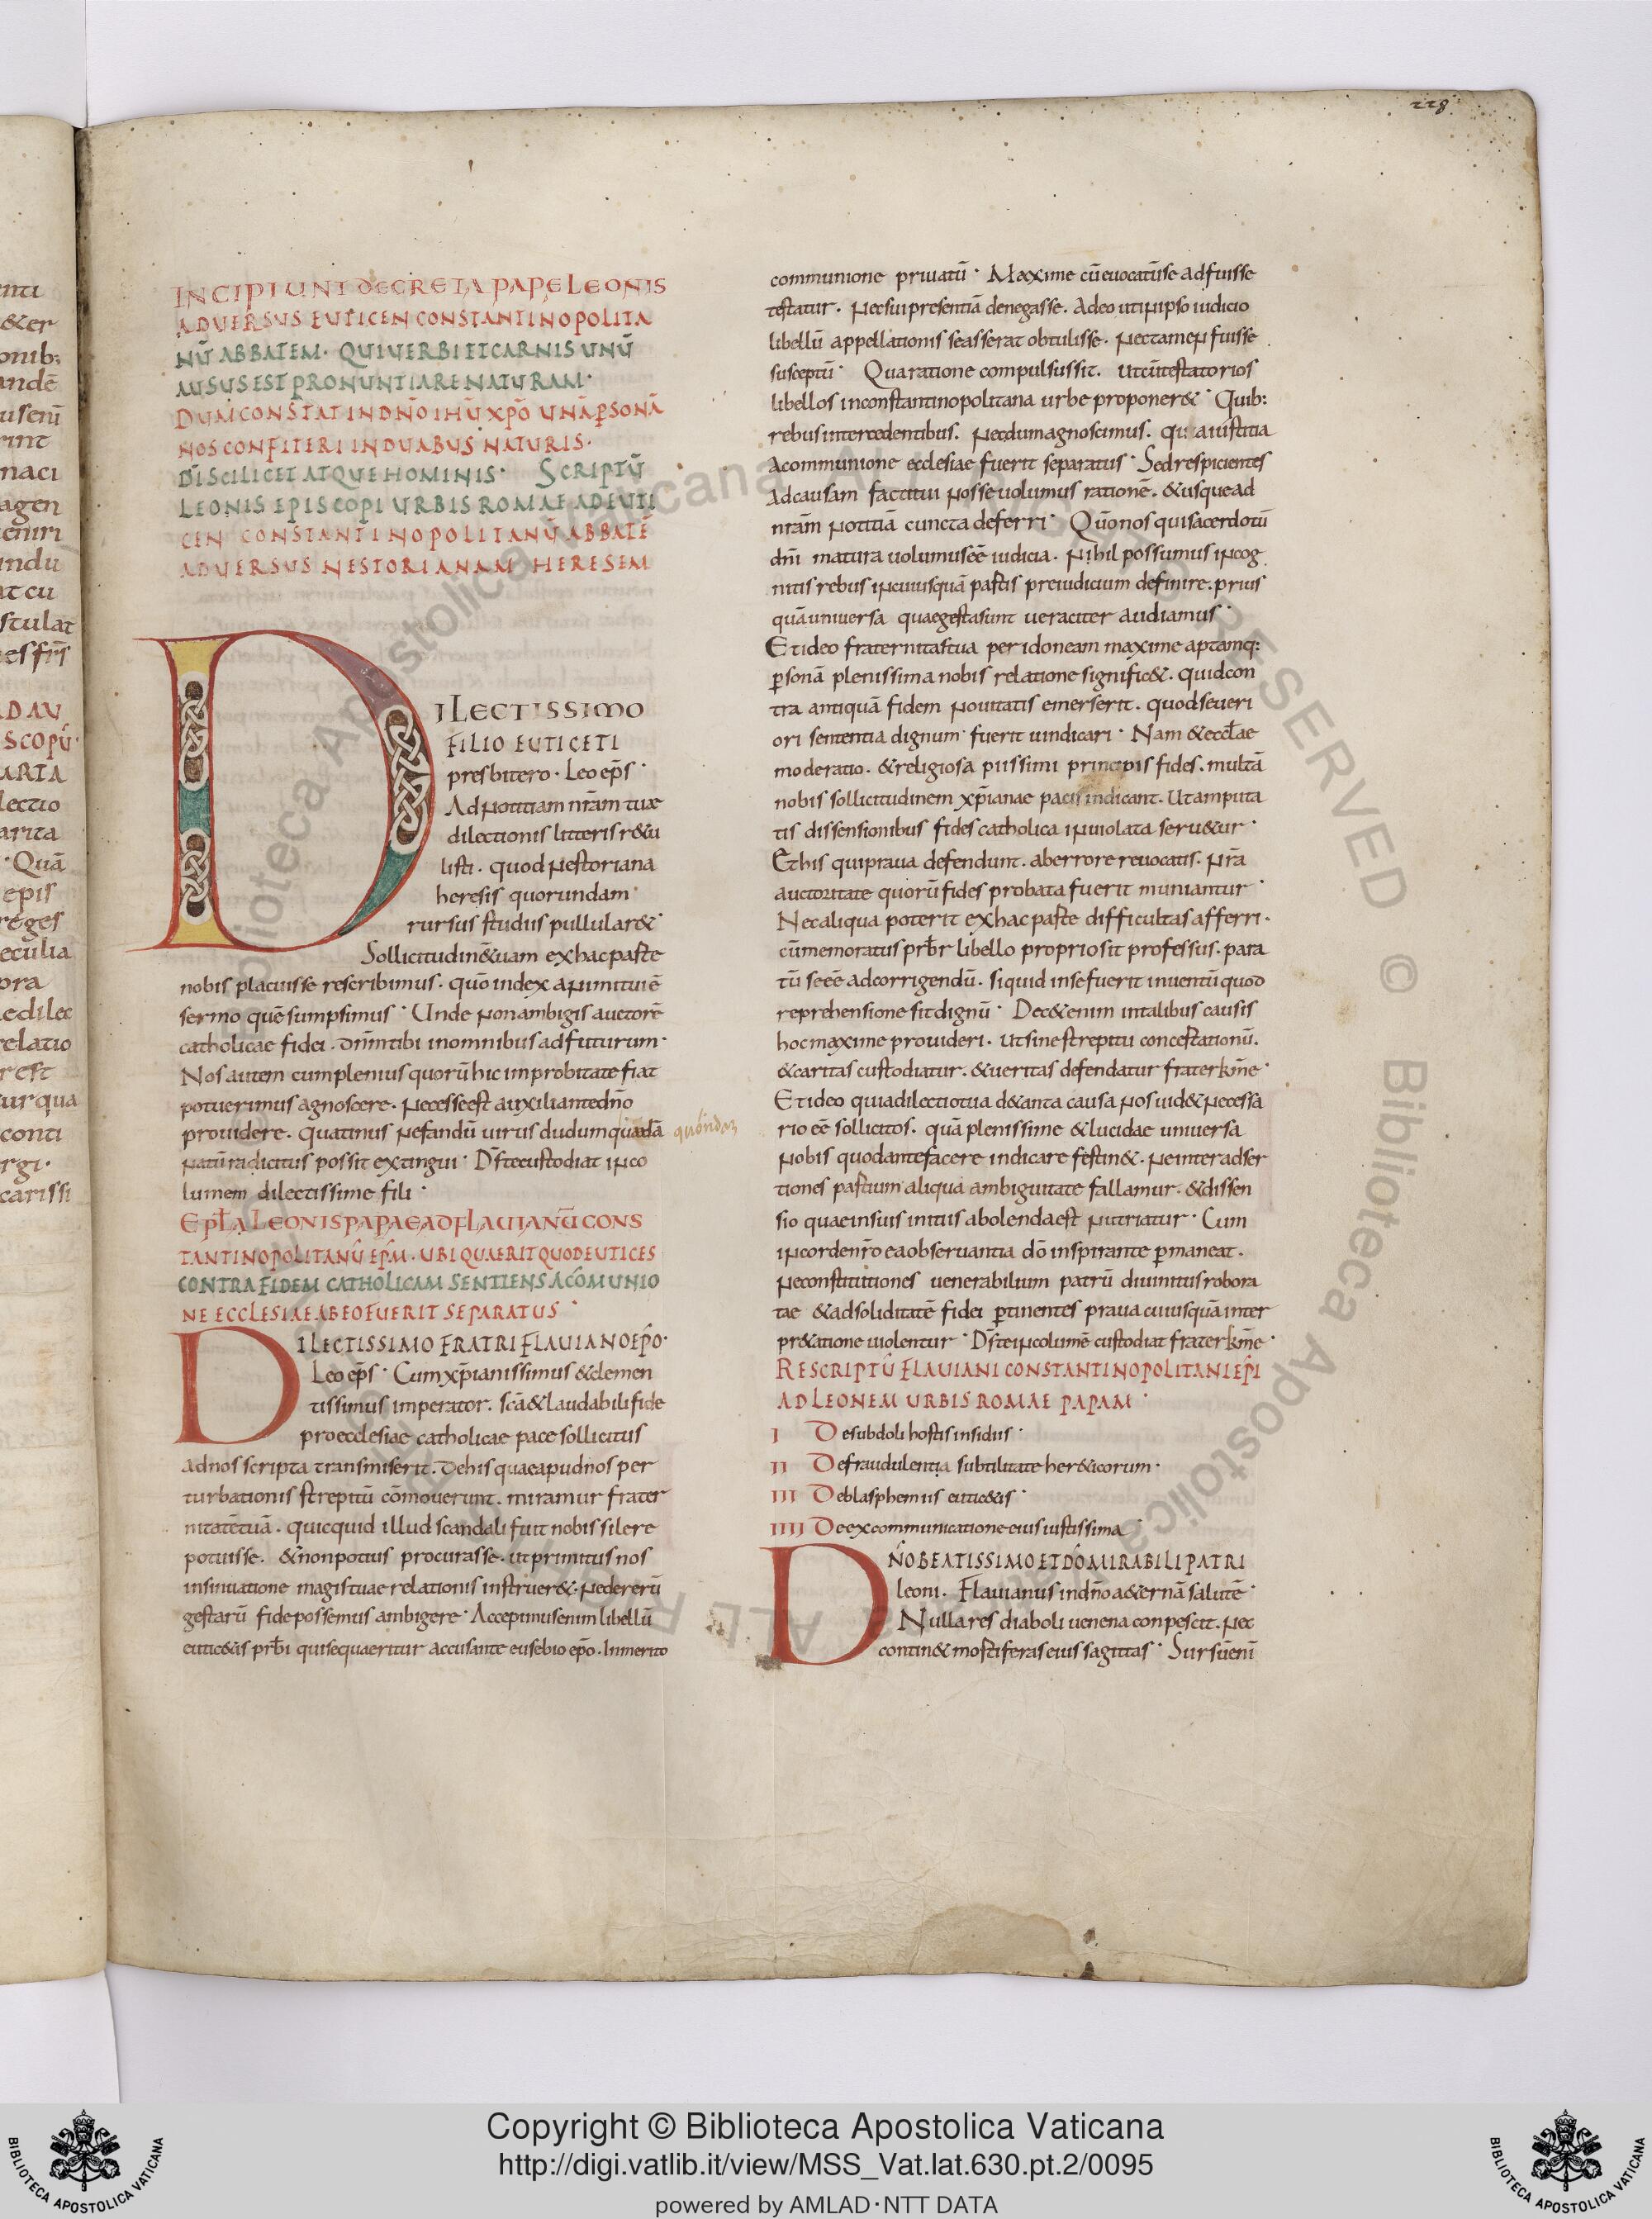 228
INCIPIUNT DECRETA PAPE LEONIS
ADVERSUS EUTICEN CONSTANTINOPOLITA
NŪ ABBATEM· QUI VERBI ET CARNIS UNŪ
AUSUS EST PRONUNTIARE NATURAM·
DUM CONSTAT IN DN̄O IHŪ XP̄O UNĀ ꝑSONĀ
NOS CONFITERI IN DUABUS NATURIS·
DĪ SCILICET ATQUE HOMINIS· SCRIPTŪ
LEONIS EPISCOPI URBIS ROMAE AD EUTI
CEN CONSTANTINOPOLITANŪ ABBATĒ
ADVERSUS NESTORIANAM HERESEM
DILECTISSIMO
FILIO EUTICETI
presbitero· Leo ep̄s·
Ad notitiam nr̄am tuae
dilectionis litteris r&u
listi· quod nestoriana
heresis quorundam
rursus studiis pullular&·
Sollicitudin& uam ex hac parte
nobis placuisse rescribimus· quō index animi tui ē
sermo quē sumpsimus· Unde non ambigis auctorē
catholicae fidei· dn̄m tibi in omnibus adfuturum·
Nos autem cum plenius quorū hic improbitate fiat
potuerimus agnoscere· necesse est auxiliante dn̄o
providere· quatinus nefandū virus dudum quadā quōndam
natū radicitus possit extingui· D̄s te custodiat inco
lumem dilectissime fili·
EPL̄A LEONIS PAPAE AD FLAVIANŪ CONS
TANTINOPOLITANŪ EP̄M· UBI QUAERIT QUOD EUTICES
CONTRA FIDEM CATHOLICAM SENTIENS A CŌMUNIO
NE ECCLESIAE AB EO FUERIT SEPARATUS·
DILECTISSIMO FRATRI FLAVIANO EP̄O·
Leo ep̄s· Cum xp̄ianissimus & clemen
tissimus imperator· scā & laudabili fide
pro ecclesiae catholicae pace sollicitus
ad nos scripta transmiserit· de his quae apud nos per
turbationis strepitū cōmoverunt· miramur frater
nitatē tuā· quicquid illud scandali fuit nobis silere
potuisse· & non potius procurasse· ut primitus nos
insinuatione magis tuae relationis instruer&· ne de rerū
gestarū fide possemus ambigere· Accepimus enim libellū
eutic&is prb̄i qui se quaeritur accusante eusebio ep̄o· Inmerito
communione privatū· Maxime cū evocatū se adfuisse
testatur· nec sui presentiā denegasse· Adeo ut in ipso iudicio
libellū appellationis se asserat obtulisse· nec tamen fuisse
susceptū· Qua ratione compulsus sit· ut cūtestatorios
libellos in constantinopolitana urbe proponer&· Quib:
rebus intercedentibus· necdum agnoscimus· qua iustitia
a communione ecclesiae fuerit separatus· Sed respicientes
ad causam facti tui nosse volumus rationē· & usque ad
nr̄am notitiā cuncta deferri· Qūo nos qui sacerdotū
dn̄i matura volumus eē iudicia· Nihil possumus incog
nitis rebus in cuiusquā partis preiudicium definire· prius
quā universa quae gesta sunt veraciter audiamus·
Et ideo fraternitas tua per idoneam maxime aptamq:
ꝑsonā plenissima nobis relatione signific&· quid con
tra antiquā fidem novitatis emerserit· quod severi
ori sententia dignum fuerit vindicari· Nam & eccl̄ae
moderatio· & religiosa piissimi principis fides· multā
nobis sollicitudinem xp̄ianae pacis indicant· Ut amputa
tis dissensionibus fides catholica inviolata serv&ur·
Et his qui prava defendunt· ab errore revocatis· nr̄a
auctoritate quorū fides probata fuerit muniantur·
Nec aliqua poterit ex hac parte difficultas afferri·
cū memoratus prb̄r libello proprio sit professus· para
tū se eē ad corrigendū· si quid in se fuerit inventū quod
reprehensione sit dignū· Dec& enim in talibus causis
hoc maxime provideri· ut sine strepitu concertationū·
& caritas custodiatur· & veritas defendatur frater km̄e·
Et ideo quia dilectio tua de tanta causa nos vid& necessa
rio eē sollicitos· quā plenissime & lucidae universa
nobis quod ante facere indicare festin&· ne inter adser
tiones partium aliqua ambiguitate fallamur· & dissen
sio quae in suis initiis abolenda est nutriatur· Cum
in corde nr̄o ea observantia dō inspirante ꝑmaneat·
ne constitutiones venerabilium patrū divinitus robora
tae & ad soliditatē fidei ꝑtinentes prava cuiusquā inter
pr&atione violentur· D̄s te incolumē custodiat frater km̄e·
RESCRIPTŪ FLAVIANI CONSTANTINOPOLITANI EP̄I
AD LEONEM URBIS ROMAE PAPAM·
I De subdoli hostis insidiis·
II De fraudulentia subtilitate her&icorum·
III De blasphemiis eutic&is·
IIII De excommunicatione eius iustissima·
DN̄O BEATISSIMO ET DŌ MIRABILI PATRI
leoni· Flavianus in dn̄o a&ernā salutē·
Nulla res diaboli venena conpescit· nec
contin& mortiferas eius sagittas· Sursū enī
Copyright © Biblioteca Apostolica Vaticana
http://digi.vatlib.it/view/MSS_Vat.lat.630.pt.2/0095
powered by AMLAD·NTT DATA
BIBLIOTECA APOSTOLICA VATICANA
BIBLIOTECA APOSTOLICA VATICANA